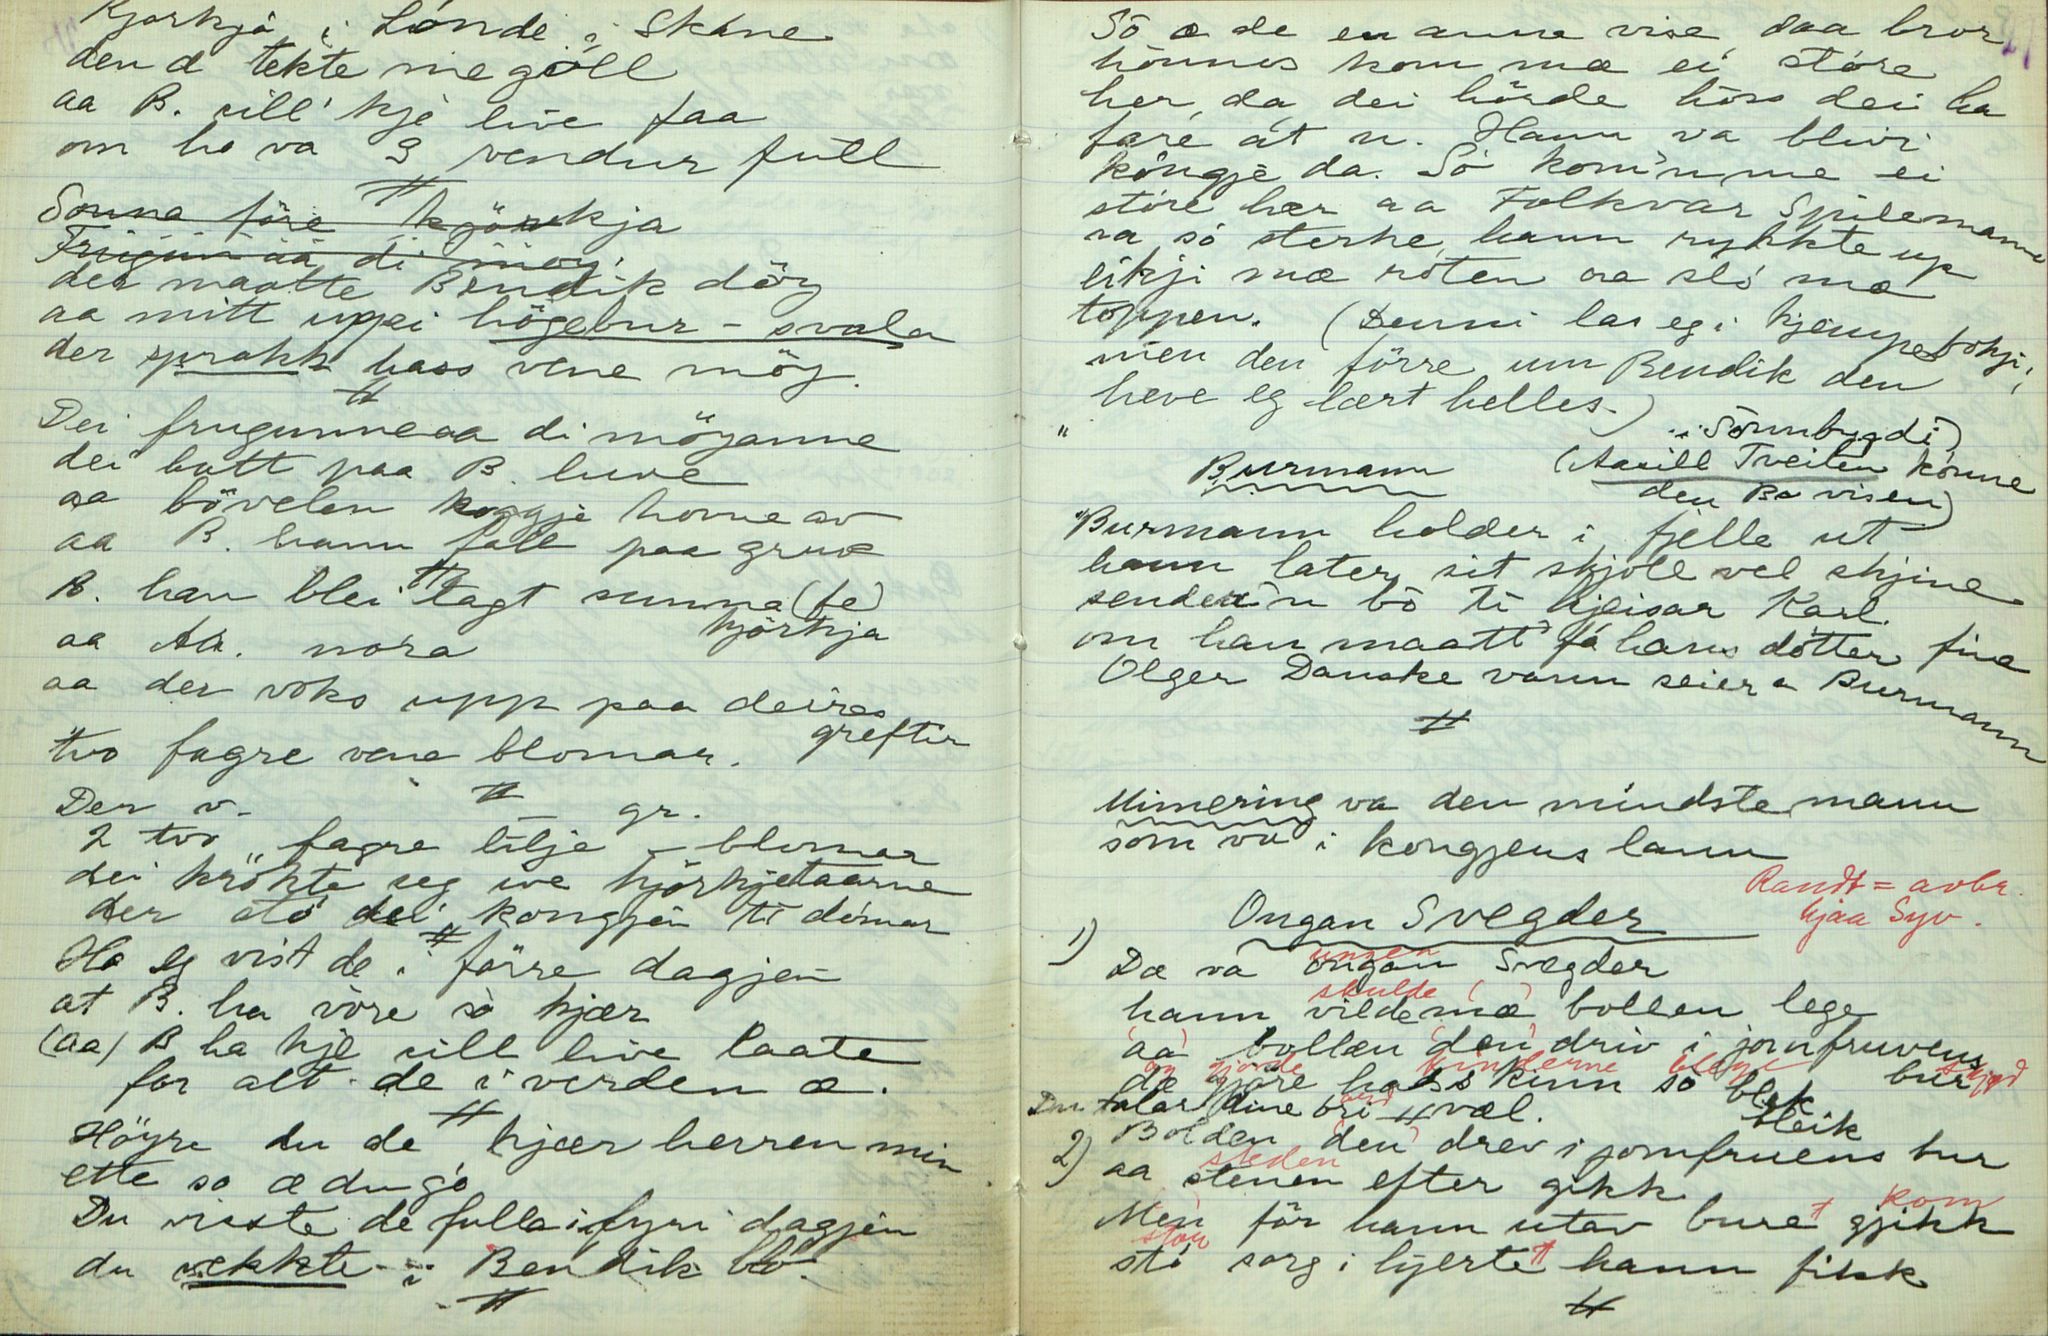 Kjørkjå i Lónde i Skåne
den d tekte me gøll
aa B. vill' kje live faa
om ho va 3 vendur full
#
Sonna före kjörkja
Frugun aa di möy
der maatte Bendik döy
aa mitt uppi högebur-svala
der sprakk hass vene möy.
#
Dei frugunne aa di möyanne
dei batt paa B. luve
aa bövelen hoggje hovue av
aa B. hann fall paa gruve
#
B. han blei lagt sunna (fe)
kjörkja
aa Aa. nora
aa der voks upp paa deires
grefter
tvo fagre vene blomar.
#
Der v. — gr.
2 tvo fagre lilje-blomar
dei krökte seg ive kjörkjetaarne
der stó dei kongjen ti dómar
#
Ha eg vist de i förre dagjen
at B. ha vòre sò kjær
(aa) B ha kje vill live laate
for alt de i verden æ.
#
Höyre du de kjær herren min
ette so æ du gó
Du visste de fulla i fyri dagjen
du vekkte i Bendik bló.
#
Sò æ de en anna vise, daa bror
hönnes kom mæ ei stóre
her, da dei hörde höss dei ha
fare åt n. Hann va blivi
kóngje da. Sò kom'n me ei
stóre hær aa Folkvar Spilemann
va sò sterke, hann rykkte up
eikji mæ róten aa sló mæ
toppen. (Denni las eg i kjempebokji,
men den förre um Bendik den
heve eg lært helles.)
" Burmann (Aasill Tveiten i Sönnbygdi) kónne
den Bo visen)
"Burmann holder i fjelle ut
hann later sit skjóll vel skjine
sender'n bò ti kjeisar Karl.
om han maatt' få hans dótter fine
Olger Danske vann seier a Burmann
#
Mimering va den mindste mann
som va i kongjens lann
Ongan Svegder
Randt = avbr.
hjaa Syv.
1) Dæ va ongan Svegder
ungen
hann vilde mæ bollen lege
skulde ( )
aa bollen den driv i jomfruvens
bur
de gjöre hass kinn sò blek
og gjorde kinderne blege
bleik
Du talar dine ori væl.
#
2) Bolden (den) drev i jomfruens bur
aa stenen efter gikk
sveden
Men för hann utav buret gjikk
kom
stó sorg i hjerte hann fikk
stor
#